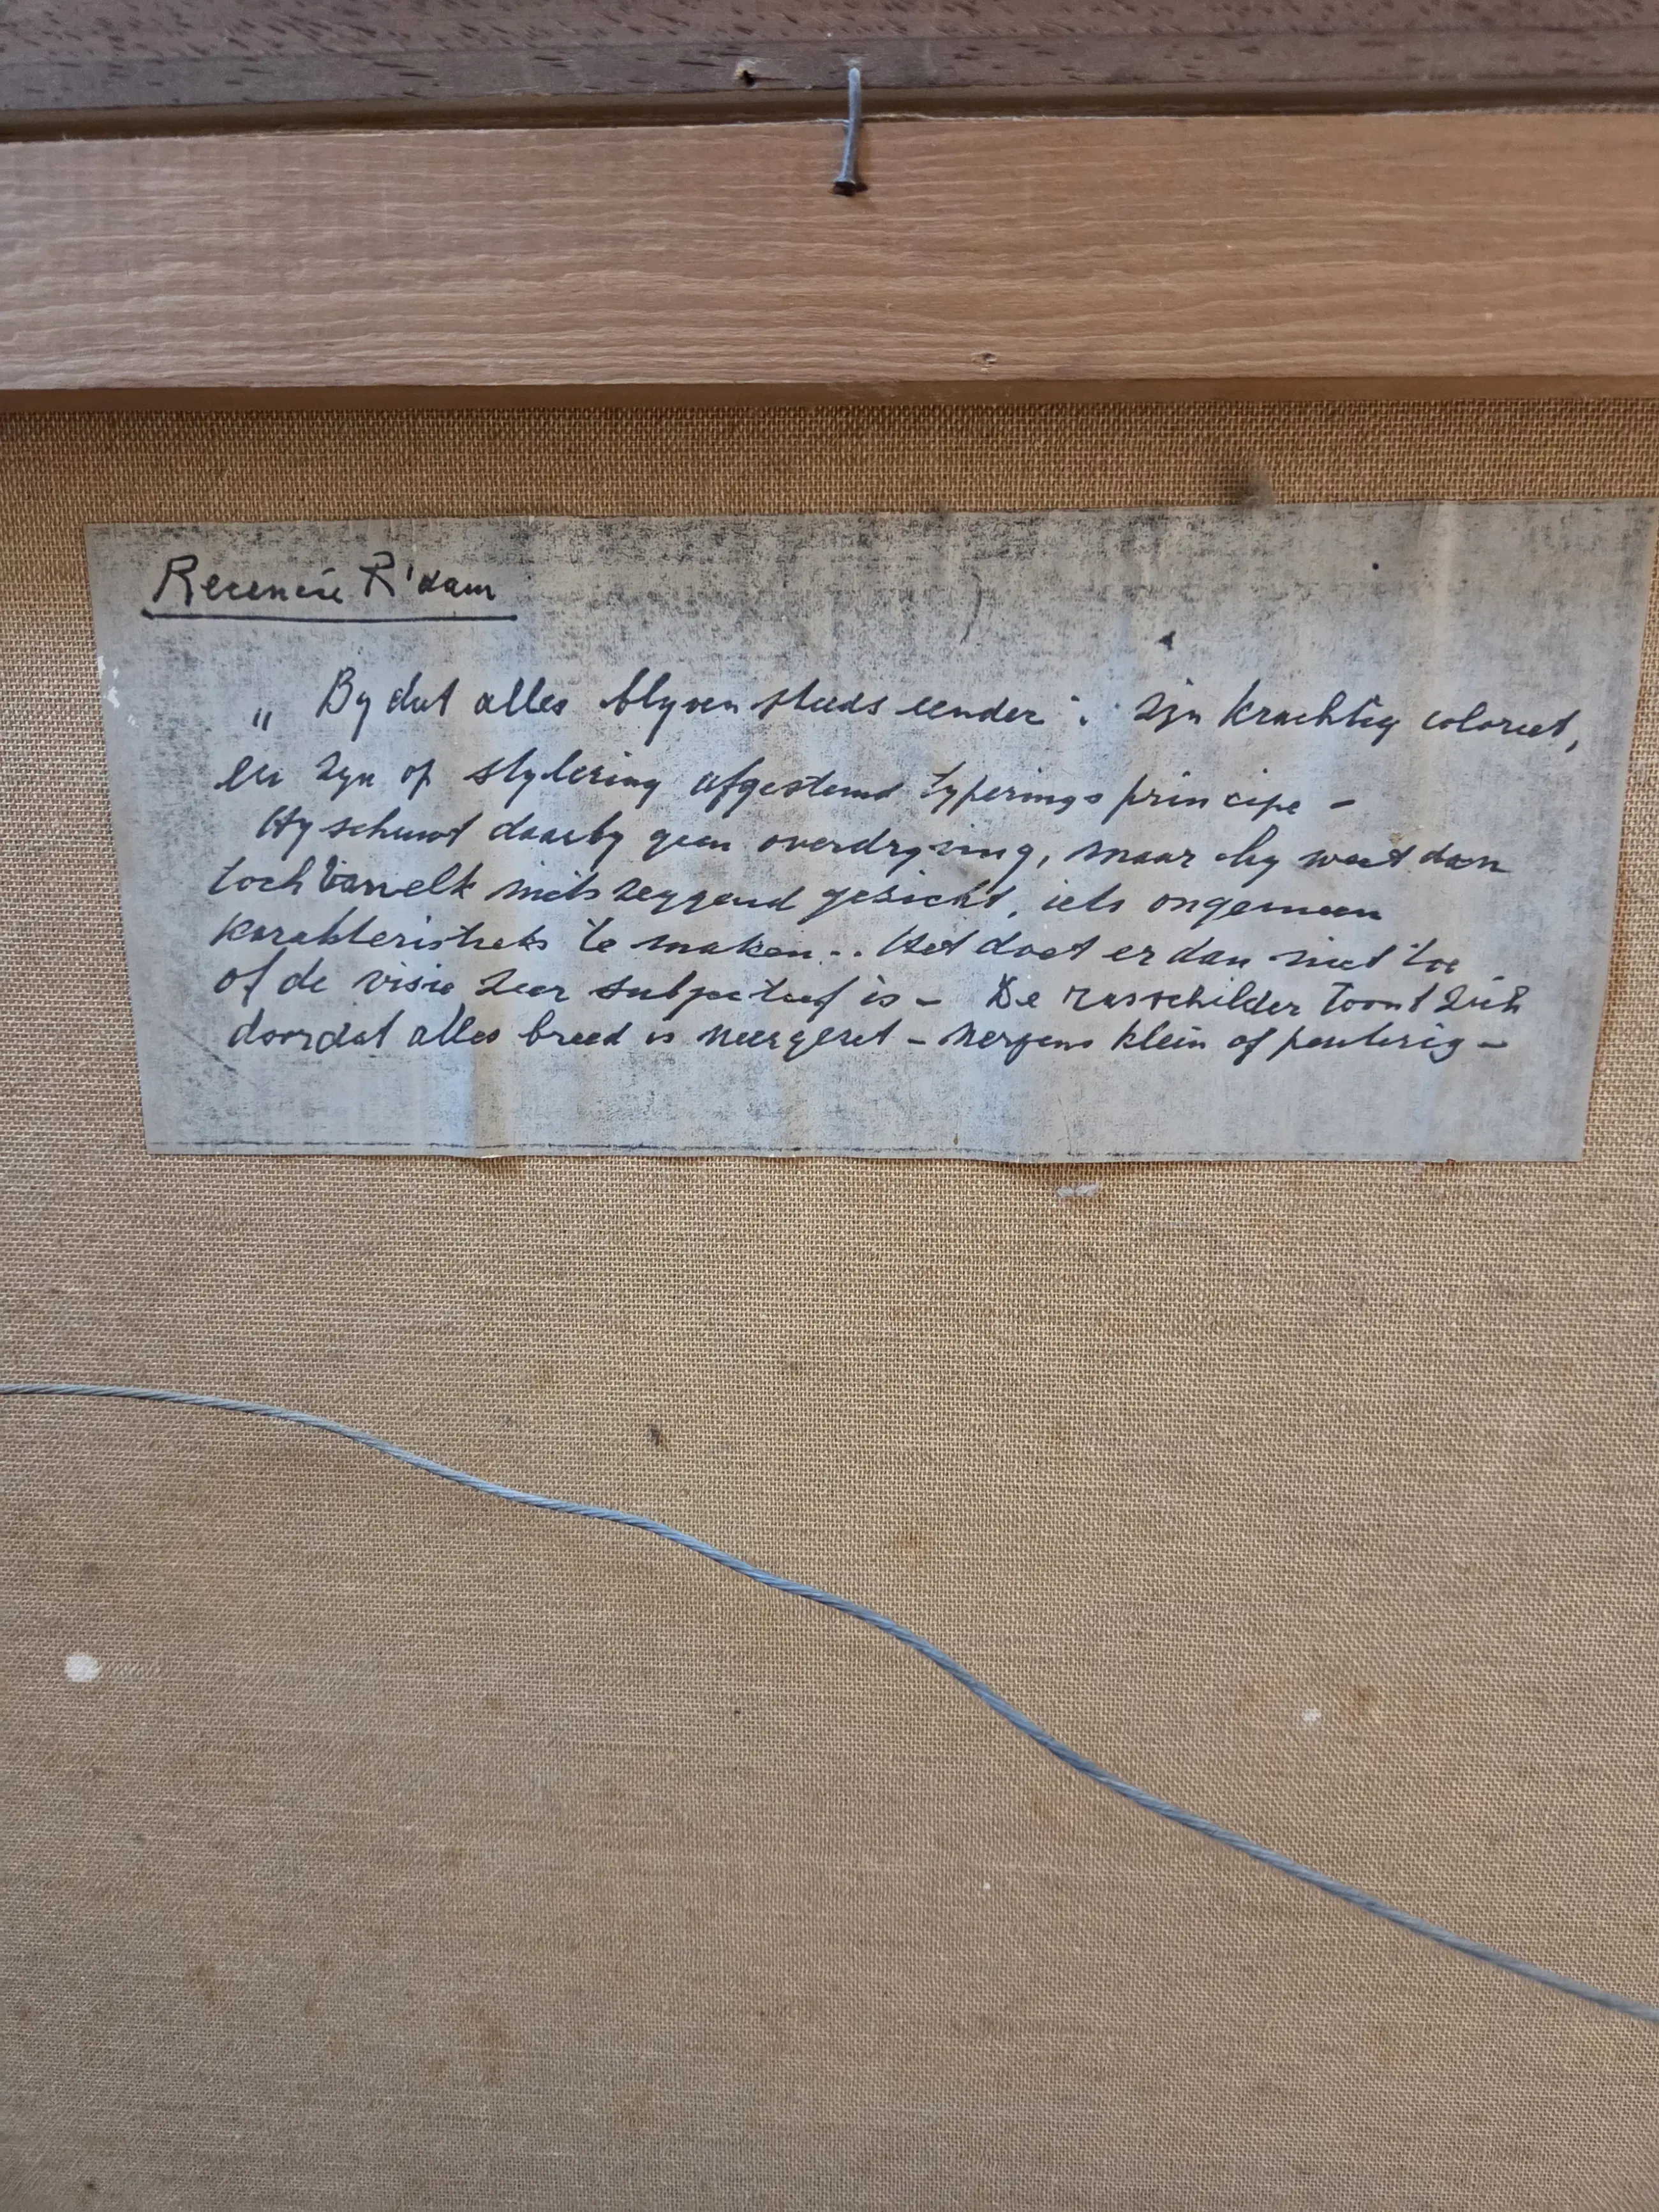 Recensie R'dam
„ By dat alles blyven steeds eender : zyn krachtig coloriet,
en zyn op stylering afgestemd typerings principe –
Hy schuwt daarby geen overdryving, maar hy weet dan
toch van elk niets zeggend gezicht, iets ongemeen
karakteristieks te maken .. Het doet er dan niet toe
of de visie zeer subjectief is – De rasschilder toont zich
doordat alles breed is neergezet – nergens klein of peuterig –